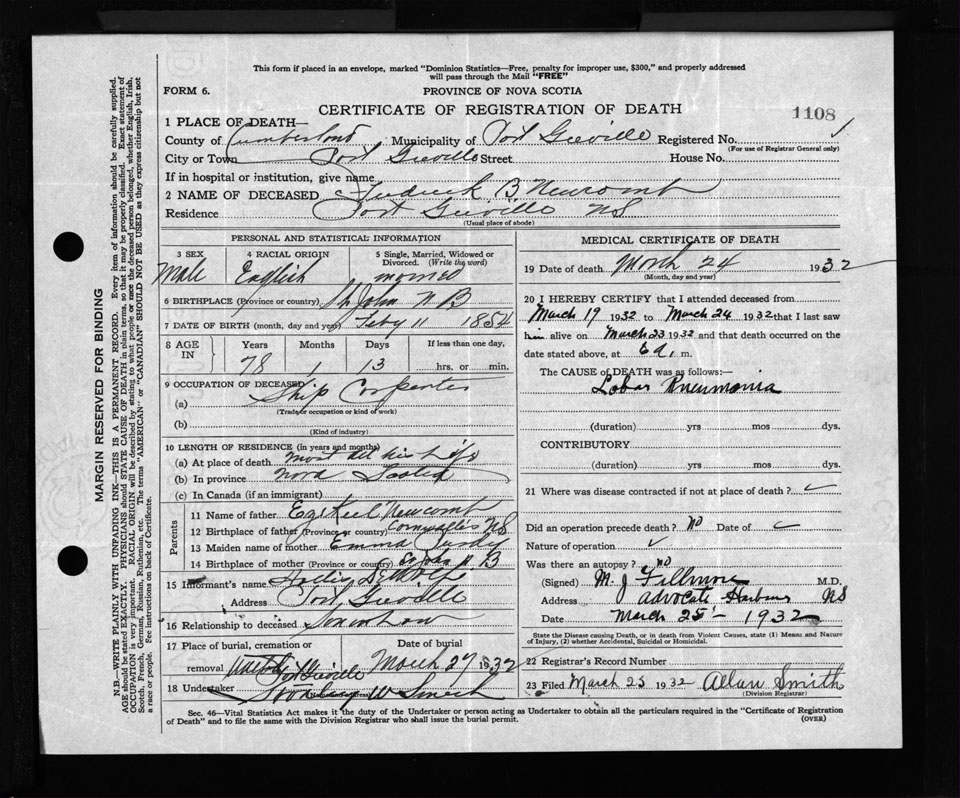 This form if placed in an envelope, marked "Dominion Statistics—Free, penalty for improper use, $300," and properly addressed
will pass through the Mail "FREE"
FORM 6.
PROVINCE OF NOVA SCOTIA
CERTIFICATE OF REGISTRATION OF DEATH
1108
1 PLACE OF DEATH—
County of Cumberland Municipality of Port Greville Registered No.
(For use of Registrar General only)
City or Town Port Greville Street House No.
If in hospital or institution, give name
2 NAME OF DECEASED Frederick B Newcomb
Residence Port Greville NS
(Usual place of abode)
PERSONAL AND STATISTICAL INFORMATION
3 SEX
Male
4 RACIAL ORIGIN
English
5 Single, Married, Widowed or
Divorced. (Write the word)
married
6 BIRTHPLACE (Province or country) St John N B
7 DATE OF BIRTH (month, day and year) Feby 11 1854
8 AGE IN
Years Months Days If less than one day,
78 1 13 hrs. or min.
9 OCCUPATION OF DECEASED
(a) Ship Carpenter
(Trade or occupation or kind of work)
(b)
(Kind of industry)
10 LENGTH OF RESIDENCE (in years and months)
(a) At place of death most all his life
(b) In province Nova Scotia
(c) In Canada (if an immigrant)
Parents
11 Name of father Ezekiel Newcomb
12 Birthplace of father (Province or country) Cornwallis NS
13 Maiden name of mother Emma
14 Birthplace of mother (Province or country) St John N B
15 Informant's name
Address Port Greville
16 Relationship to deceased Son in Law
17 Place of burial, cremation or
removal Port Greville
Date of burial
March 27 1932
18 Undertaker W Smith
MEDICAL CERTIFICATE OF DEATH
19 Date of death March 24 1932
(Month, day and year)
20 I HEREBY CERTIFY that I attended deceased from
March 19 1932 to March 24 1932 that I last saw
him alive on March 23 1932 and that death occurred on the
date stated above, at 6 a. m.
The CAUSE OF DEATH was as follows:
Lobar Pneumonia
(duration) yrs mos dys.
CONTRIBUTORY
(duration) yrs mos dys.
21 Where was disease contracted if not at place of death?
Did an operation precede death? No Date of
Nature of operation
Was there an autopsy? no
(Signed) M. J Fillmore M.D.
Address Advocate Harbour NS
Date March 25 1932
State the Disease causing Death, or in death from Violent Causes, state (1) Means and Nature
of Injury, (2) whether Accidental, Suicidal or Homicidal.
22 Registrar's Record Number
23 Filed March 25 1932 Allan Smith
(Division Registrar)
Sec. 46—Vital Statistics Act makes it the duty of the Undertaker or person acting as Undertaker to obtain all the particulars required in the "Certificate of Registration
of Death" and to file the same with the Division Registrar who shall issue the burial permit.
(OVER)
MARGIN RESERVED FOR BINDING
N.B.—WRITE PLAINLY WITH UNFADING INK—THIS IS A PERMANENT RECORD. Every item of information should be carefully supplied.
AGE should be stated EXACTLY. PHYSICIANS should STATE CAUSE OF DEATH in plain terms, so that it may be properly classified. Exact statement of
OCCUPATION is very important. RACIAL ORIGIN will be described by stating to what people or race the deceased person belonged, whether English, Irish,
Scotch, French, German, Russian, Ruthenian, etc. The terms "AMERICAN" or "CANADIAN" SHOULD NOT BE USED as they express citizenship but not
a race or people. See instructions on back of Certificate.